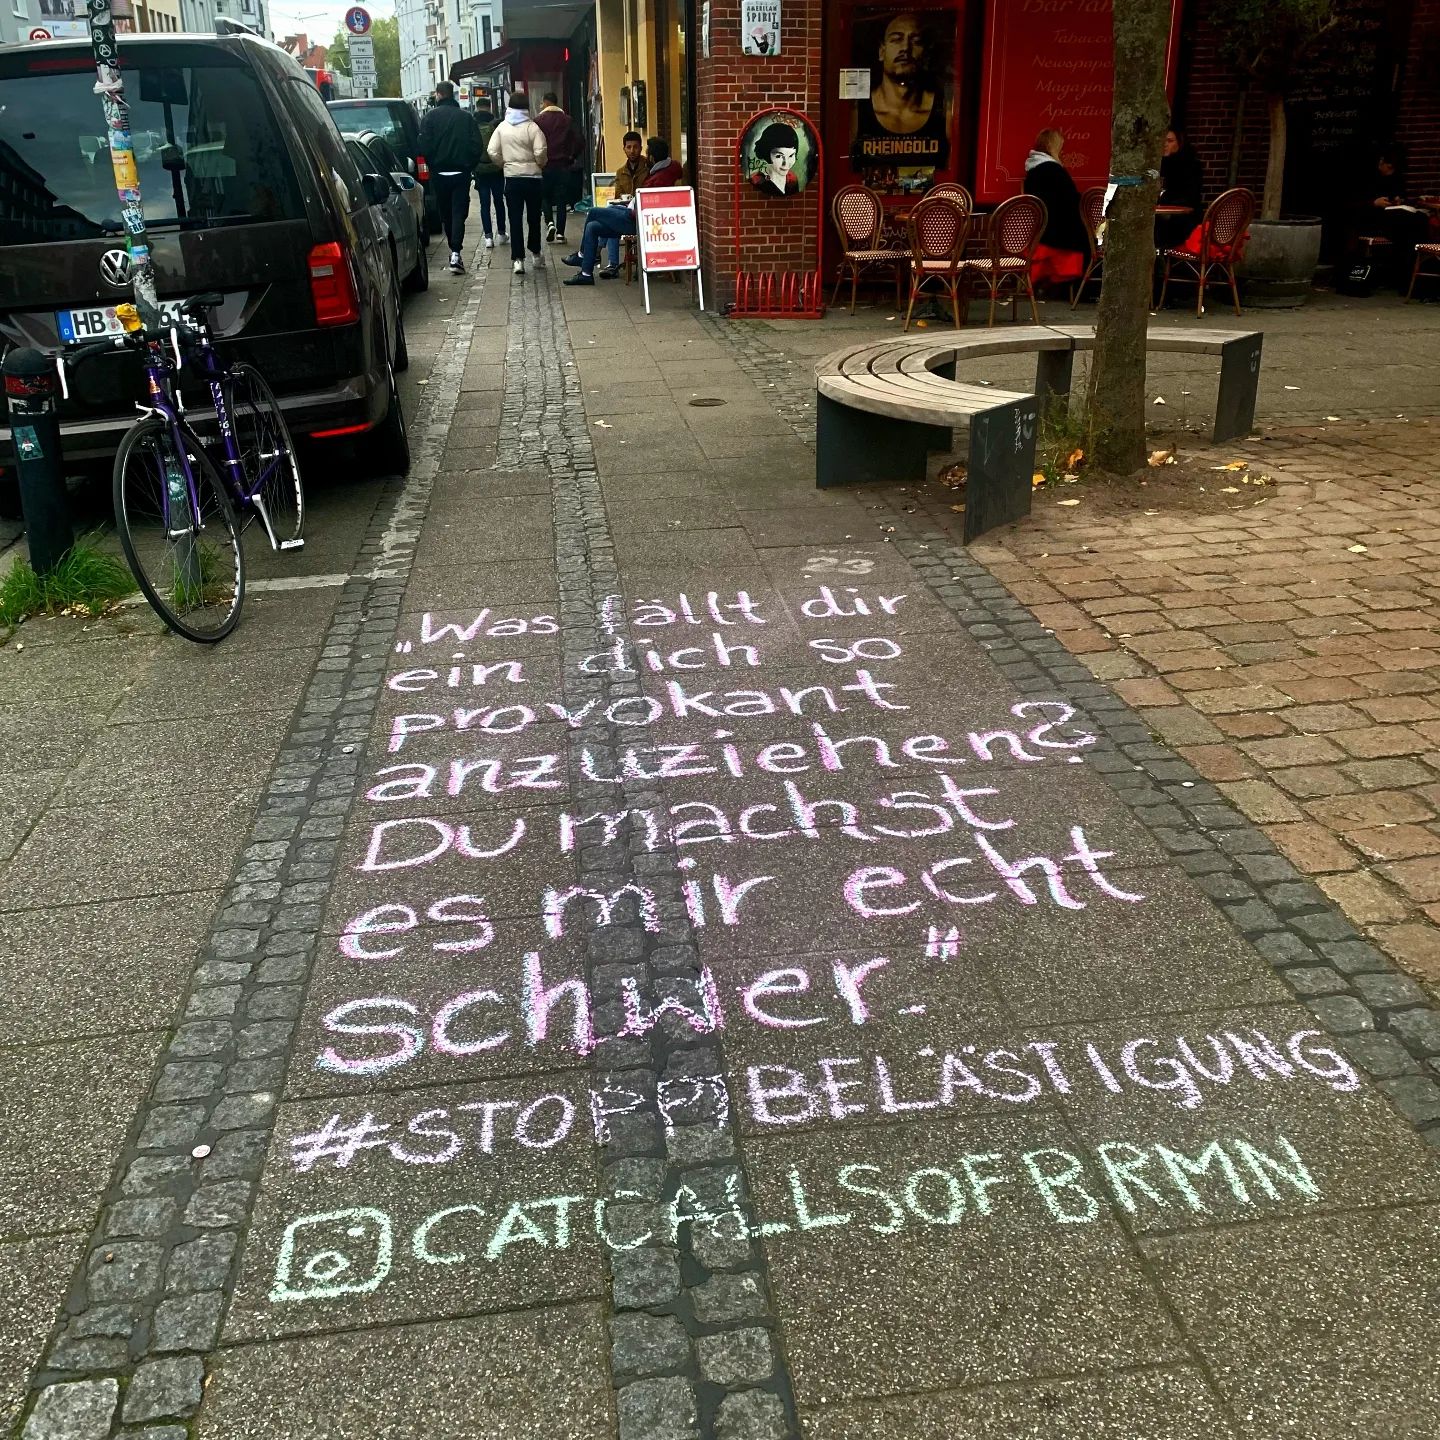 AMERICAN
SPIRIT
RHEINGOLD
Bar Tabac
Tabacco
Newspaper
Magazine
Aperitivo
Vino
Tickets
&
Infos
HB
23
„Was fällt dir
ein dich so
provokant
anzuziehen?
Du machst
es mir echt
schwer."
#STOPPBELÄSTIGUNG
CATCALLSOFBRMN